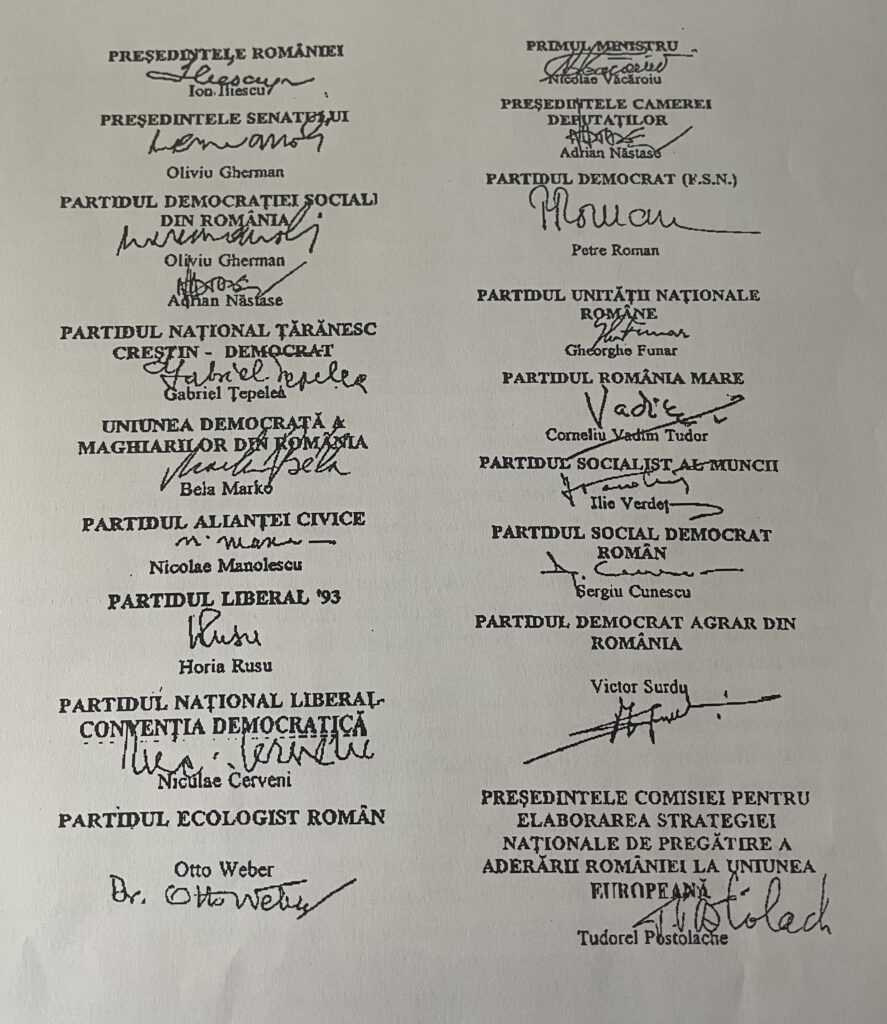 PREŞEDINTELE ROMÂNIEI
Iliescu
Ion Iliescu
PREŞEDINTELE SENATULUI
Oliviu Gherman
PARTIDUL DEMOCRAŢIEI SOCIALE
DIN ROMÂNIA
Oliviu Gherman
Adrian Năstase
PARTIDUL NAŢIONAL ŢĂRĂNESC
CREŞTIN - DEMOCRAT
Gabriel Ţepelea
Gabriel Ţepelea
UNIUNEA DEMOCRATĂ A
MAGHIARILOR DIN ROMÂNIA
Marko Bela
Bela Marko
PARTIDUL ALIANŢEI CIVICE
Nicolae Manolescu
PARTIDUL LIBERAL '93
Rusu
Horia Rusu
PARTIDUL NAŢIONAL LIBERAL-
CONVENŢIA DEMOCRATICĂ
Niculae Cerveni
PARTIDUL ECOLOGIST ROMÂN
Otto Weber
Dr. Otto Weber
PRIMUL MINISTRU
Nicolae Văcăroiu
PREŞEDINTELE CAMEREI
DEPUTAŢILOR
Adrian Năstase
PARTIDUL DEMOCRAT (F.S.N.)
PRoman
Petre Roman
PARTIDUL UNITĂŢII NAŢIONALE
ROMÂNE
Gheorghe Funar
PARTIDUL ROMÂNIA MARE
Vadim
Corneliu Vadim Tudor
PARTIDUL SOCIALIST AL MUNCII
Ilie Verdeţ
PARTIDUL SOCIAL DEMOCRAT
ROMÂN
Sergiu Cunescu
PARTIDUL DEMOCRAT AGRAR DIN
ROMÂNIA
Victor Surdu
PREŞEDINTELE COMISIEI PENTRU
ELABORAREA STRATEGIEI
NAŢIONALE DE PREGĂTIRE A
ADERĂRII ROMÂNIEI LA UNIUNEA
EUROPEANĂ
Tudorel Postolache